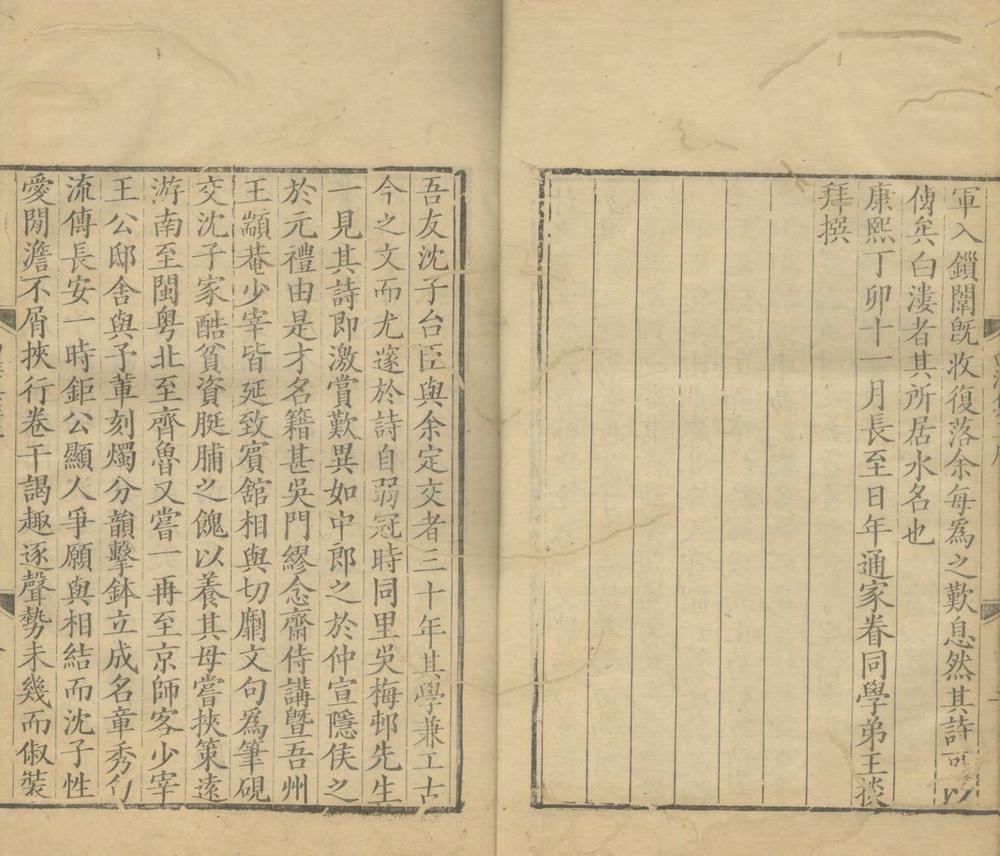 軍入鎖闈旣收復落余每爲之歎息然其詩可以
傳矣白漊者其所居水名也
康熙丁卯十一月長至日年通家眷同學弟王掞
拜撰
吾友沈子台臣與余定交者三十年其學兼工古
今之文而尤邃於詩自弱冠時同里吳梅邨先生
一見其詩即激賞歎異如中郎之於仲宣隱侯之
於元禮由是才名籍甚吳門繆念齋侍講曁吾州
王顓菴少宰皆延致賓舘相與切劘文句爲筆硯
交沈子家酷貧資脡脯之餽以養其母嘗挾策遠
游南至閩粤北至齊魯又嘗一再至京師客少宰
王公邸舍與予軰刻燭分韻擊鉢立成名章秀句
流傳長安一時鉅公顯人爭願與相結而沈子性
愛閒澹不屑挾行卷干謁趣逐聲勢未幾而俶裝